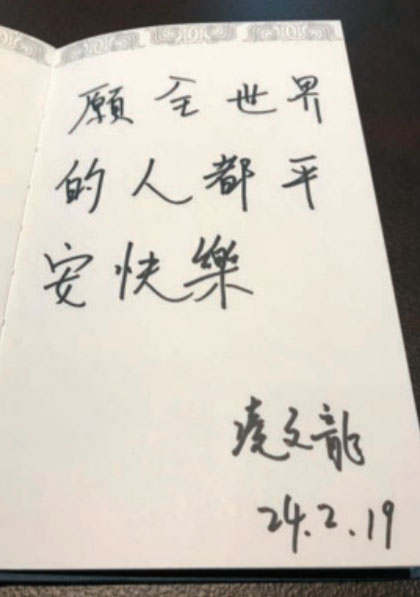 願全世界
的人都平
安快樂
文龍
24.2.19